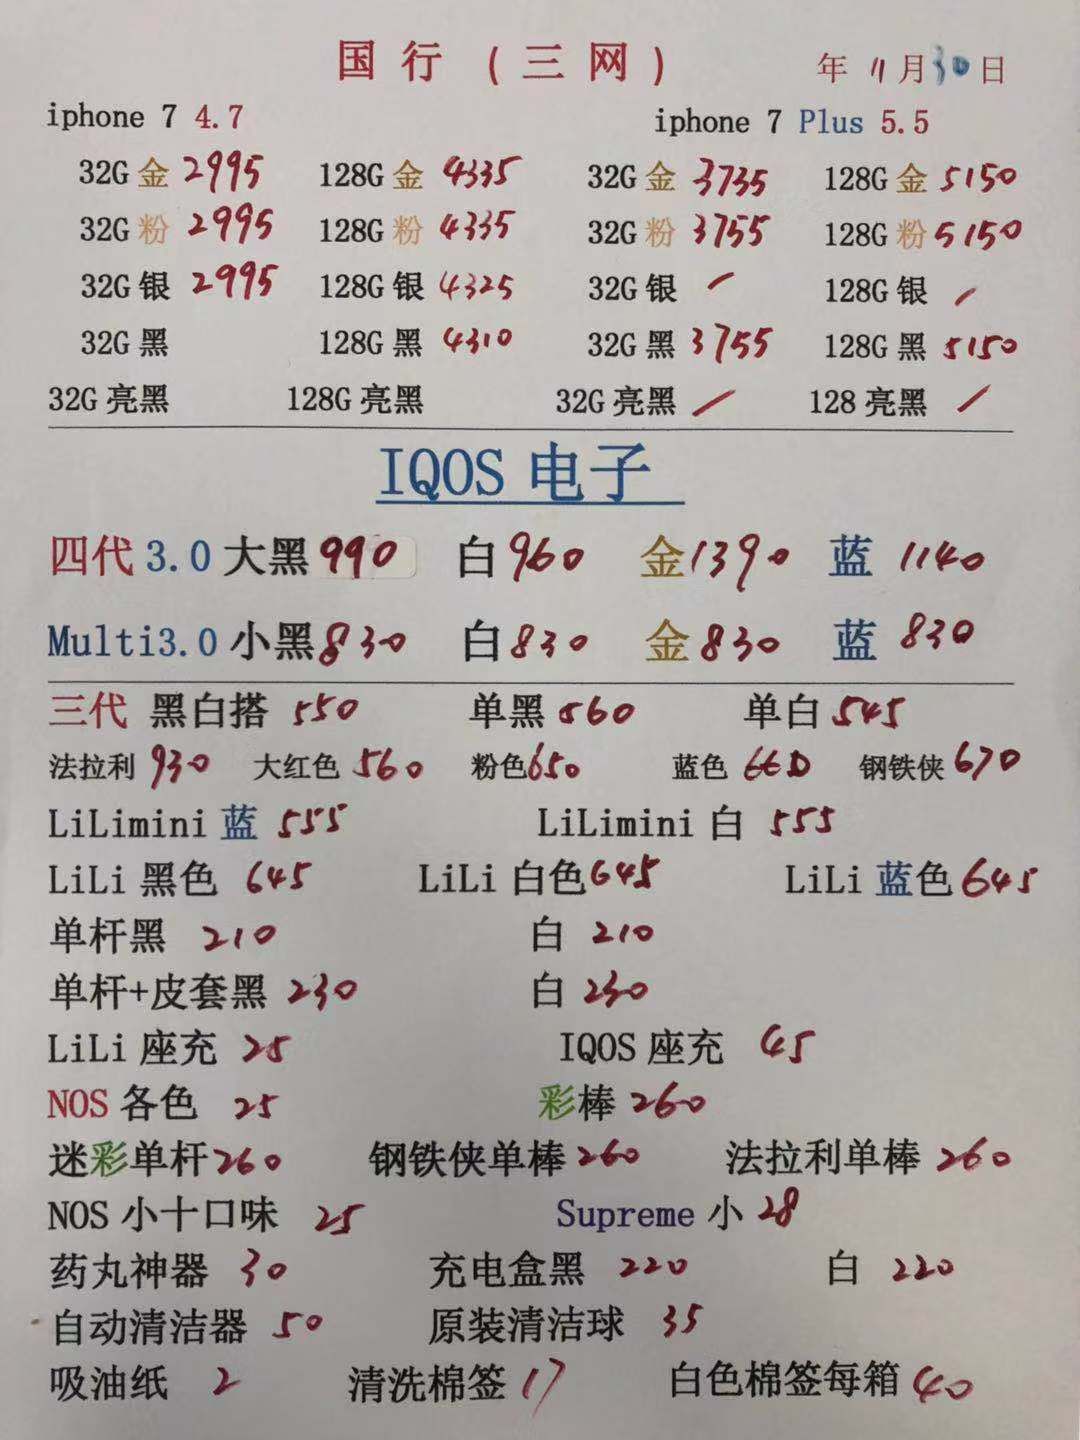 国 行 （三 网） 年 11 月 30 日
iphone 7 4.7 iphone 7 Plus 5.5
32G 金 2995 128G 金 4335 32G 金 3735 128G 金 5150
32G 粉 2995 128G 粉 4335 32G 粉 3755 128G 粉 5150
32G 银 2995 128G 银 4325 32G 银 / 128G 银 /
32G 黑 128G 黑 4310 32G 黑 3755 128G 黑 5150
32G 亮黑 128G 亮黑 32G 亮黑 / 128 亮黑 /
IQOS 电子
四代 3.0 大黑 990 白 960 金 1390 蓝 1140
Multi3.0 小黑 830 白 830 金 830 蓝 830
三代 黑白搭 550 单黑 560 单白 545
法拉利 930 大红色 560 粉色 650 蓝色 660 钢铁侠 670
LiLimini 蓝 555 LiLimini 白 555
LiLi 黑色 645 LiLi 白色 645 LiLi 蓝色 645
单杆黑 210 白 210
单杆+皮套黑 230 白 230
LiLi 座充 25 IQOS 座充 45
NOS 各色 25 彩棒 260
迷彩单杆 260 钢铁侠单棒 260 法拉利单棒 260
NOS 小十口味 25 Supreme 小 28
药丸神器 30 充电盒黑 220 白 220
自动清洁器 50 原装清洁球 35
吸油纸 2 清洗棉签 17 白色棉签每箱 40